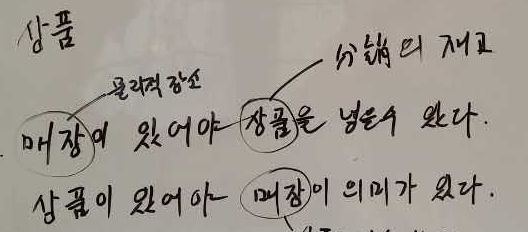 상품
分銷의 재고
물리적 장소
매장이 있어야 상품을 넣을수 있다.
상품이 있어야 매장이 의미가 있다.